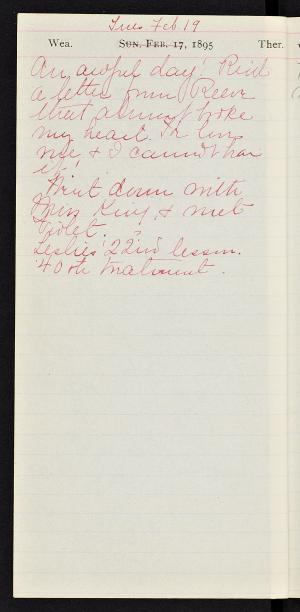 Tues Feb 19
Wea. Sun, Feb. 17, 1895 Ther.
An awful day! Recd
a letter from Reeve
that almost broke
my heart. He loves
me, & I cannot bear
it!
Went down with
Miss King, & met
Violet.
Leslie's 22nd lesson.
40th treatment.